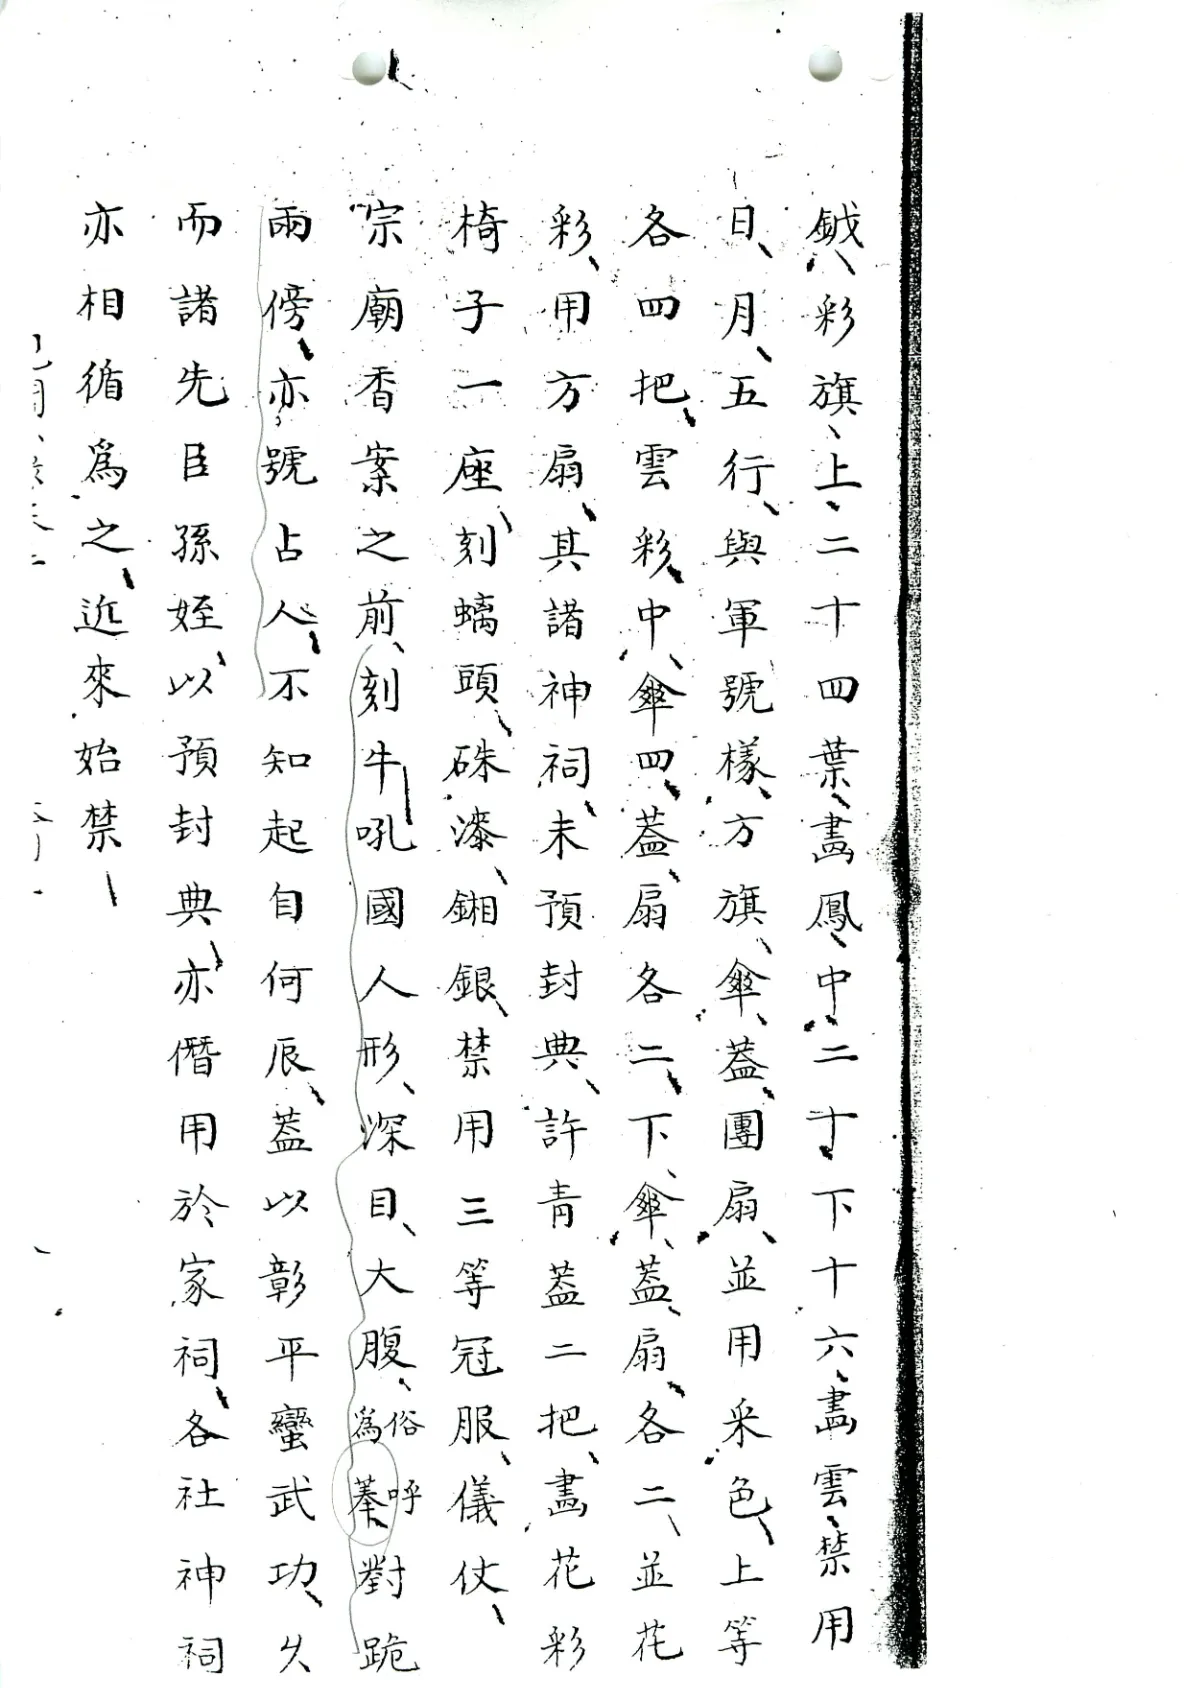 鉞彩旗、上二十四葉、畫鳳、中二十、下十六、畫雲、禁用
日、月、五行、與軍號樣、方旗、傘、蓋、團扇、並用采色、上等
各四把、雲彩、中、傘四、蓋、扇各二、下、傘、蓋、扇、各二、並花
彩、用方扇、其諸神祠、未預封典、許青蓋二把、畫花彩
椅子一座、刻螭頭、硃漆、鎺銀、禁用三等冠服、儀仗、
宗廟香案之前、刻牛吼國人形、深目、大腹、俗呼爲𦯬對跪
兩傍、亦號占人、不知起自何辰、蓋以彰平蠻武功、久
而諸先臣孫姪、以預封典、亦僭用於家祠、各社神祠
亦相循爲之、近來始禁